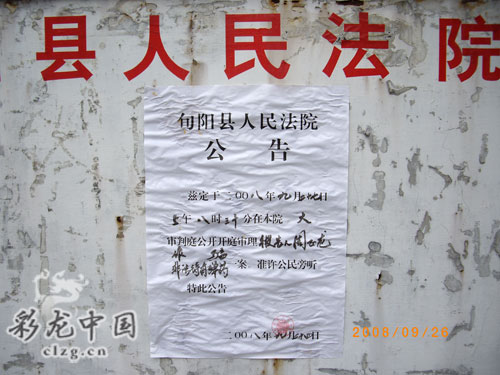 县人民法院
旬阳县人民法院
公 告
兹定于二〇〇八年九月 日
上午八时三十分在本院 大
审判庭公开开庭审理被告人周正龙
诈骗
非法持有弹药 案 准许公民旁听
特此公告
二〇〇八年九月 日
彩龙中国
clzg.cn
2008/09/26